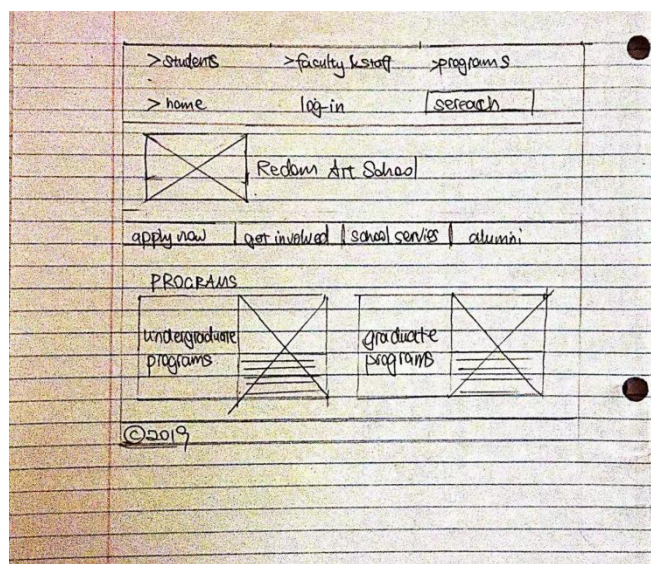 >students >faculty & staff >programs
>home log-in sereach
Redam Art School
apply now get involved school servies alumni
PROGRAMS
undergraduate graduate
programs programs
©2019